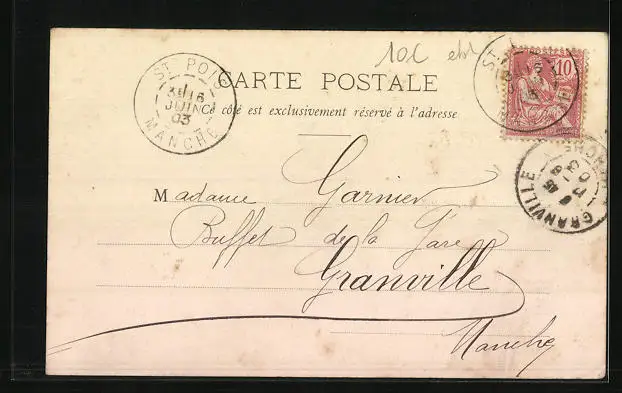 10c
ST POIS
3E 16
JUIN
03
MANCHE
10
CARTE POSTALE
Ce côté est exclusivement réservé à l'adresse
GRANVILLE
Madame Garnier
Buffet de la Gare
Granville
Manche